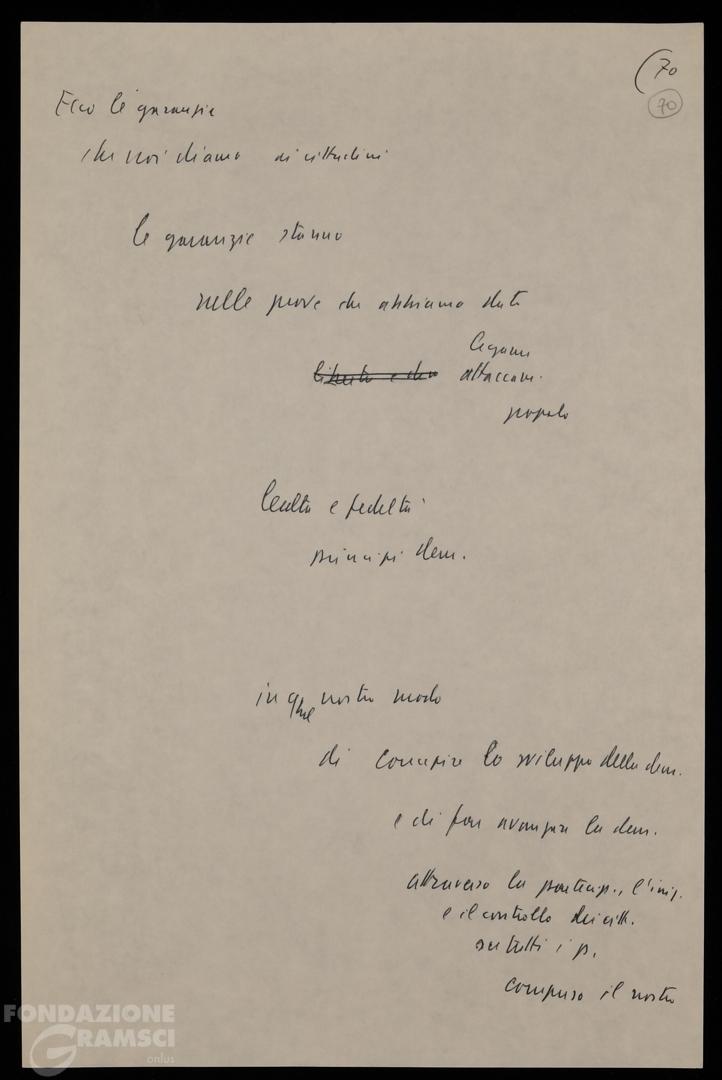 (70
70
Ecco le garanzie
che noi diamo ai cittadini
le garanzie stanno
nelle prove che abbiamo dato
legami
libertà e dem attaccam.
popolo
lealtà e fedeltà
principi dem.
in quel nostro modo
di concepire lo sviluppo della dem.
e di fare avanzare la dem.
attraverso la partecip., l'iniz.
e il controllo dei citt.
su tutti i p.
compreso il nostro
FONDAZIONE
GRAMSCI
onlus